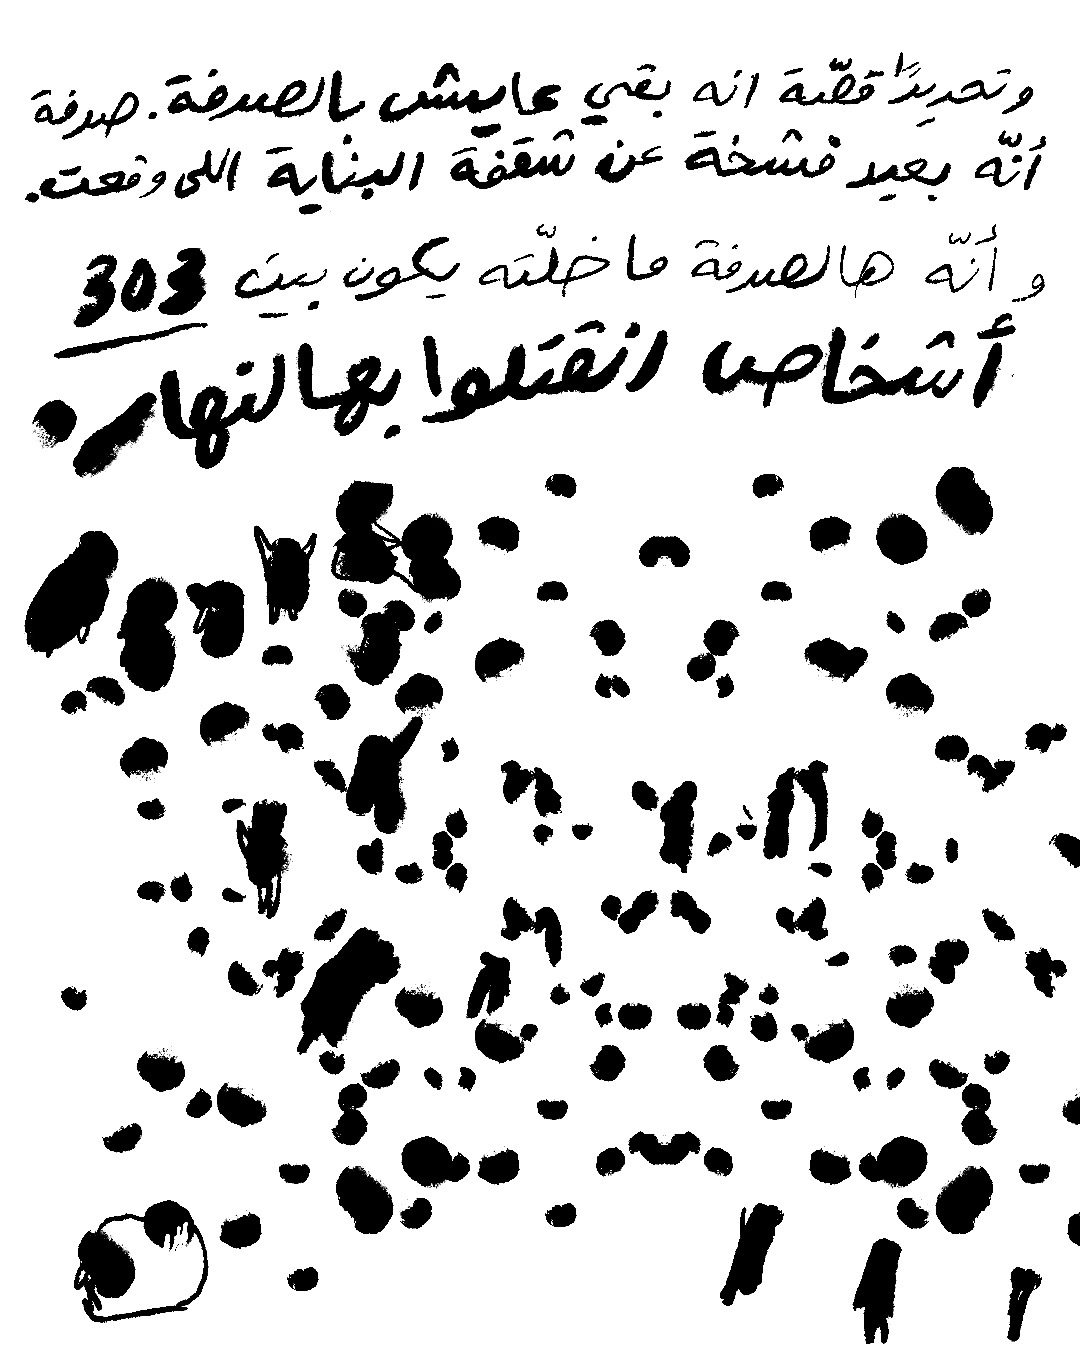 وتحديدًا قصّة انه بقي عايش بالصدفة. صدفة
أنّه بعيد فشخة عن شقفة البناية اللي وقعت.
و أنّه هالصدفة ما خلّته يكون بين 303
أشخاص انقتلوا بهالنهار.